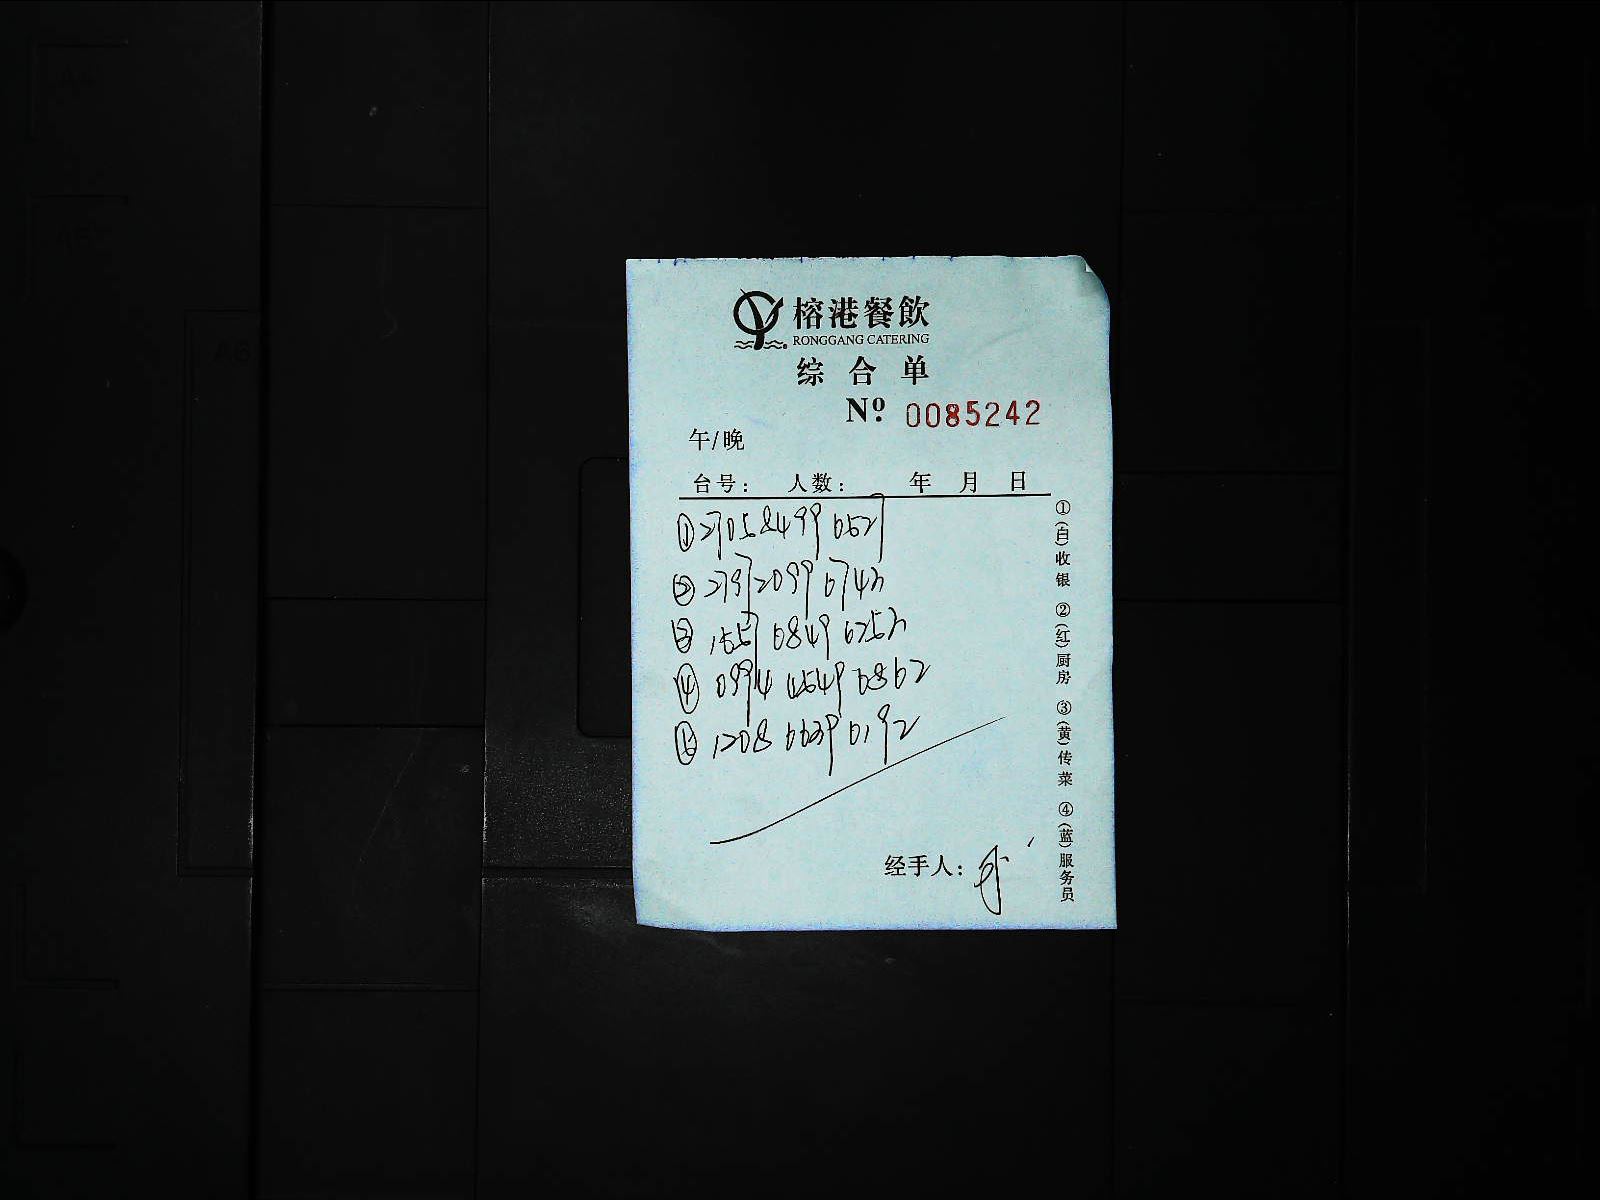 榕港餐飲
RONGGANG CATERING
综合单
Nº 0085242
午/晚
台号: 人数: 年 月 日
① 2705 8499 6527
② 2797 2099 6742
③ 1557 6849 6252
④ 0994 4549 6862
⑤ 1208 6639 6192
经手人:
①(自)收银 ②(红)厨房 ③(黄)传菜 ④(蓝)服务员